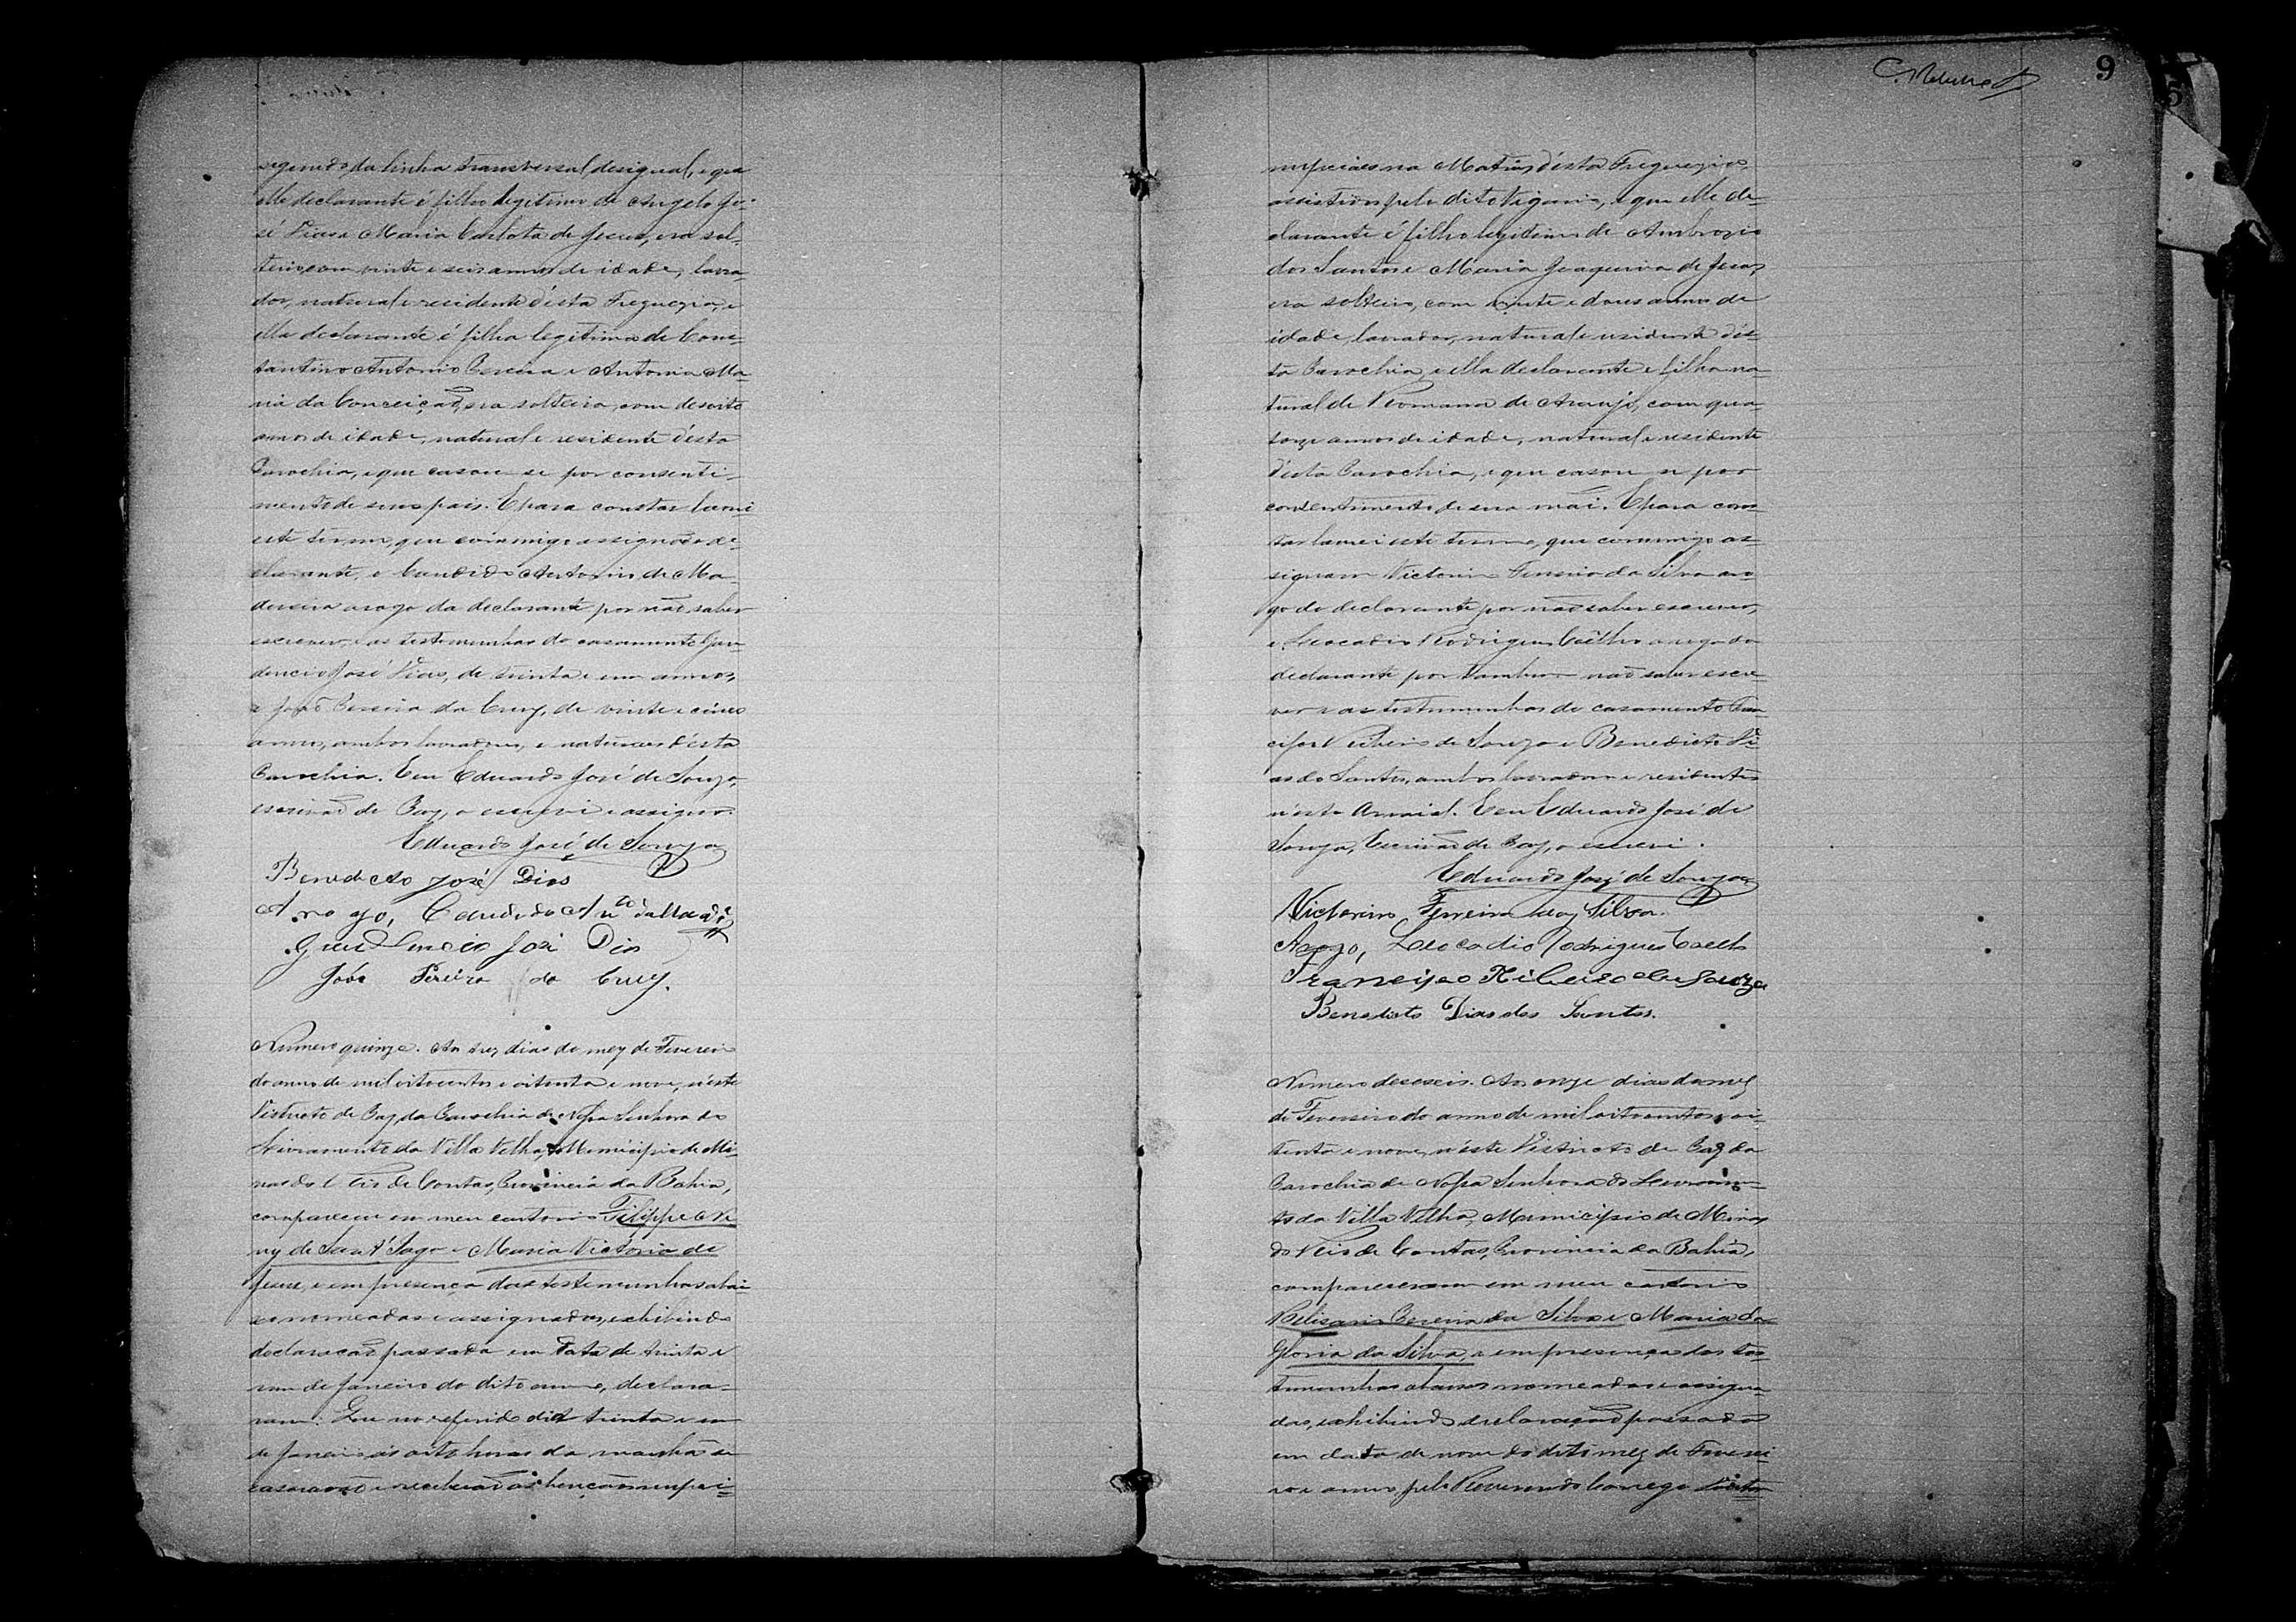 segundo da linha transversal desigual, e que
elle declarante é filho legitimo de Angelo Jo-
sé Dias e Maria Carlota de Jesus, era sol-
teiro, com vinte e seis annos de idade, lavra-
dor, natural e residente d'esta Freguezia, e
ella declarante é filha legitima de Cons-
tantino Antonio Pereira e Antonia Ma-
ria da Conceição, era solteira, com desoito
annos de idade, natural e residente d'esta
Parochia, e que casou-se por consenti-
mento de seus pais. E para constar lavrei
este termo, que commigo assignão o de-
clarante, e Candido Antonio de Ma-
dureira a rogo da declarante por não saber
escrever, e as testemunhas do casamento Gau-
dencio José Dias, de trinta e um annos,
e João Pereira da Cruz, de vinte e cinco
annos, ambos lavradores, e naturaes d'esta
Parochia. E eu Eduardo José de Souza,
escrivão de Paz, o escrevi e assigno.
Eduardo José de Souza
Benedicto José Dias
A rogo, Candido
Gaudencio José Dias
João Pereira da Cruz.
Numero quinze. Aos trez dias do mez de Fevereiro
do anno de mil oitocentos e oitenta e nove, n'este
Districto de Paz da Parochia de Nossa Senhora do
Livramento da Villa Velha, Municipio de Mi-
nas do Rio de Contas, Provincia da Bahia,
compareceu em meu cartorio Filippe Ne
ry de Sant'Iago e Maria Victoria de
Jesus, e em presença das testemunhas abai
xo nomeadas e assignadas, exhibindo
declaração passada em data de trinta e
um de Janeiro do dito anno, declara-
ram: Que no referido dia trinta e um
de Janeiro ás oito horas da manhã se
casarão e receberão as bençãos nupci-
9
nupciaes na Matriz d'esta Freguezia,
assistidos pelo dito Vigario, e que elle de-
clarante é filho legitimo de Ambrozio
dos Santos e Maria Joaquina de Jesus,
era solteiro, com vinte e dous annos de
idade, lavrador, natural e residente d'es-
ta Parochia, e ella declarante é filha na-
tural de Romana de Araujo, com qua-
torze annos de idade, natural e residente
d'esta Parochia, e que casou-se por
consentimento de sua mãi. E para cons-
tar lavrei este termo, que commigo as-
signam Victorino Ferreira da Silva a ro
go do declarante por não saber escrever,
e Leocadio Rodrigues Coelho a rogo da
declarante por tambem não saber escre-
ver e as testemunhas do casamento Fran
cisco Ribeiro de Souza e Benedicto Di
as do Santos, ambos lavradores e residentes
n'este Arraial. E eu Eduardo José de
Souza, Escrivão de Paz, o escrevi.
Eduardo José de Souza
Victorino Ferreira da Silva.
A rogo, Leocadio Rodrigues Coelho
Francisco Ribeiro de Souza
Benedicto Dias dos Santos.
Numero deseseis. Aos onze dias do mez
de Fevereiro do anno de mil oitocentos e oi-
tenta e nove, n'este Districto de Paz da
Parochia de Nossa Senhora do Livramen-
to da Villa Velha, Municipio de Minas
do Rio de Contas, Provincia da Bahia,
compareceram em meu cartorio
Belisario Pereira da Silva e Maria da
Gloria da Silva, e em presença das tes-
temunhas abaixo nomeadas e assigna-
das, exhibindo declaração passada
em data de nove do dito mez de Feverei-
ro e anno, pelo Reverendo Conego